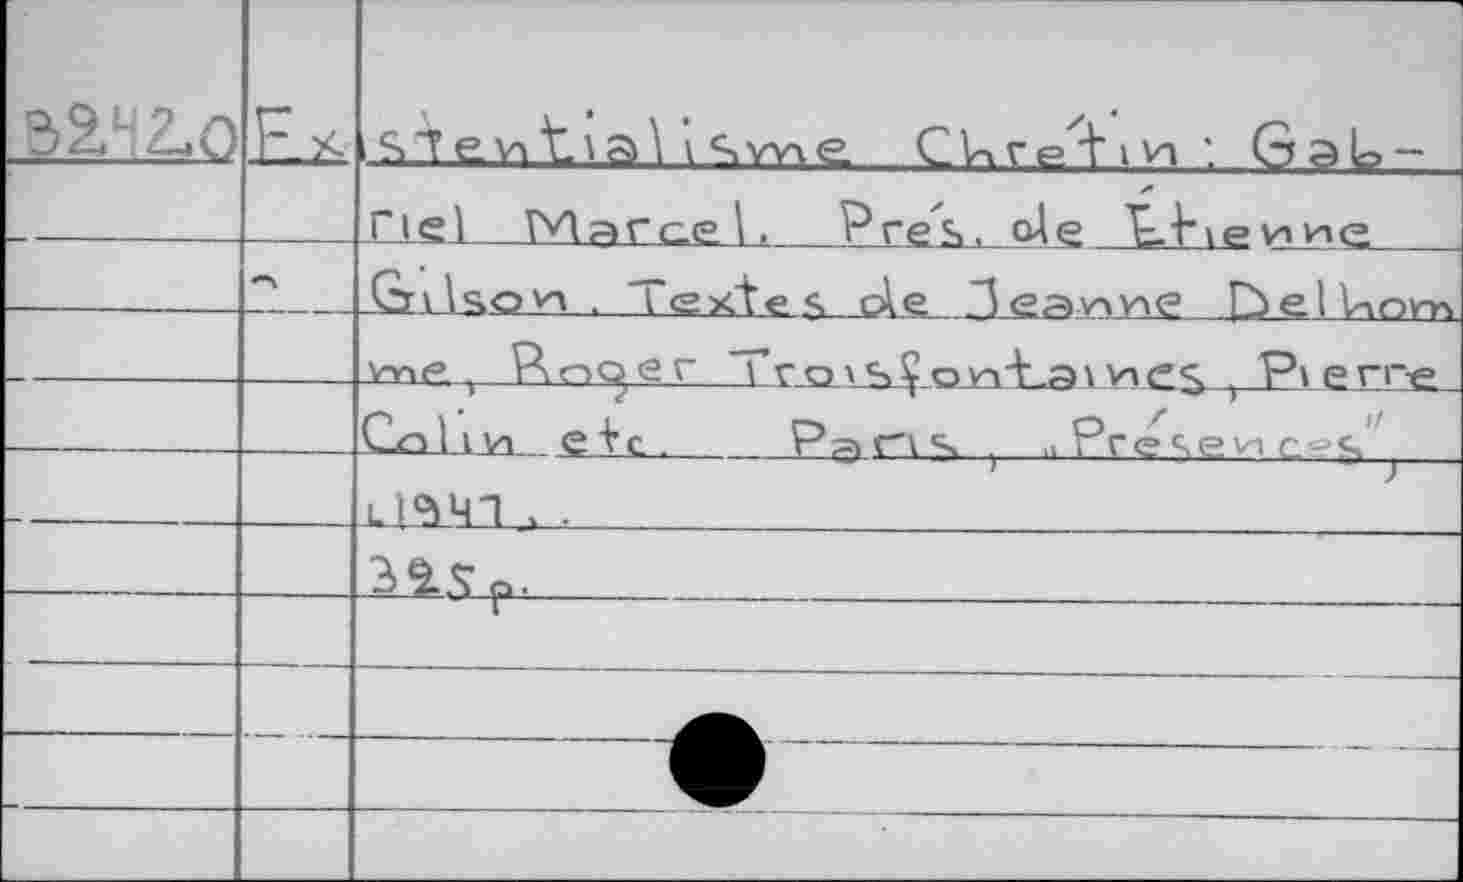 B2420 Existentialisme Chrétin : Gab-
riel Marcel. Prés. de Étienne
Gilson. Textes de Jeanne Delhom
me, Roger Troisfontaines, Pierre
Colin etc. Paris, „Présences",
1947..
325 p.